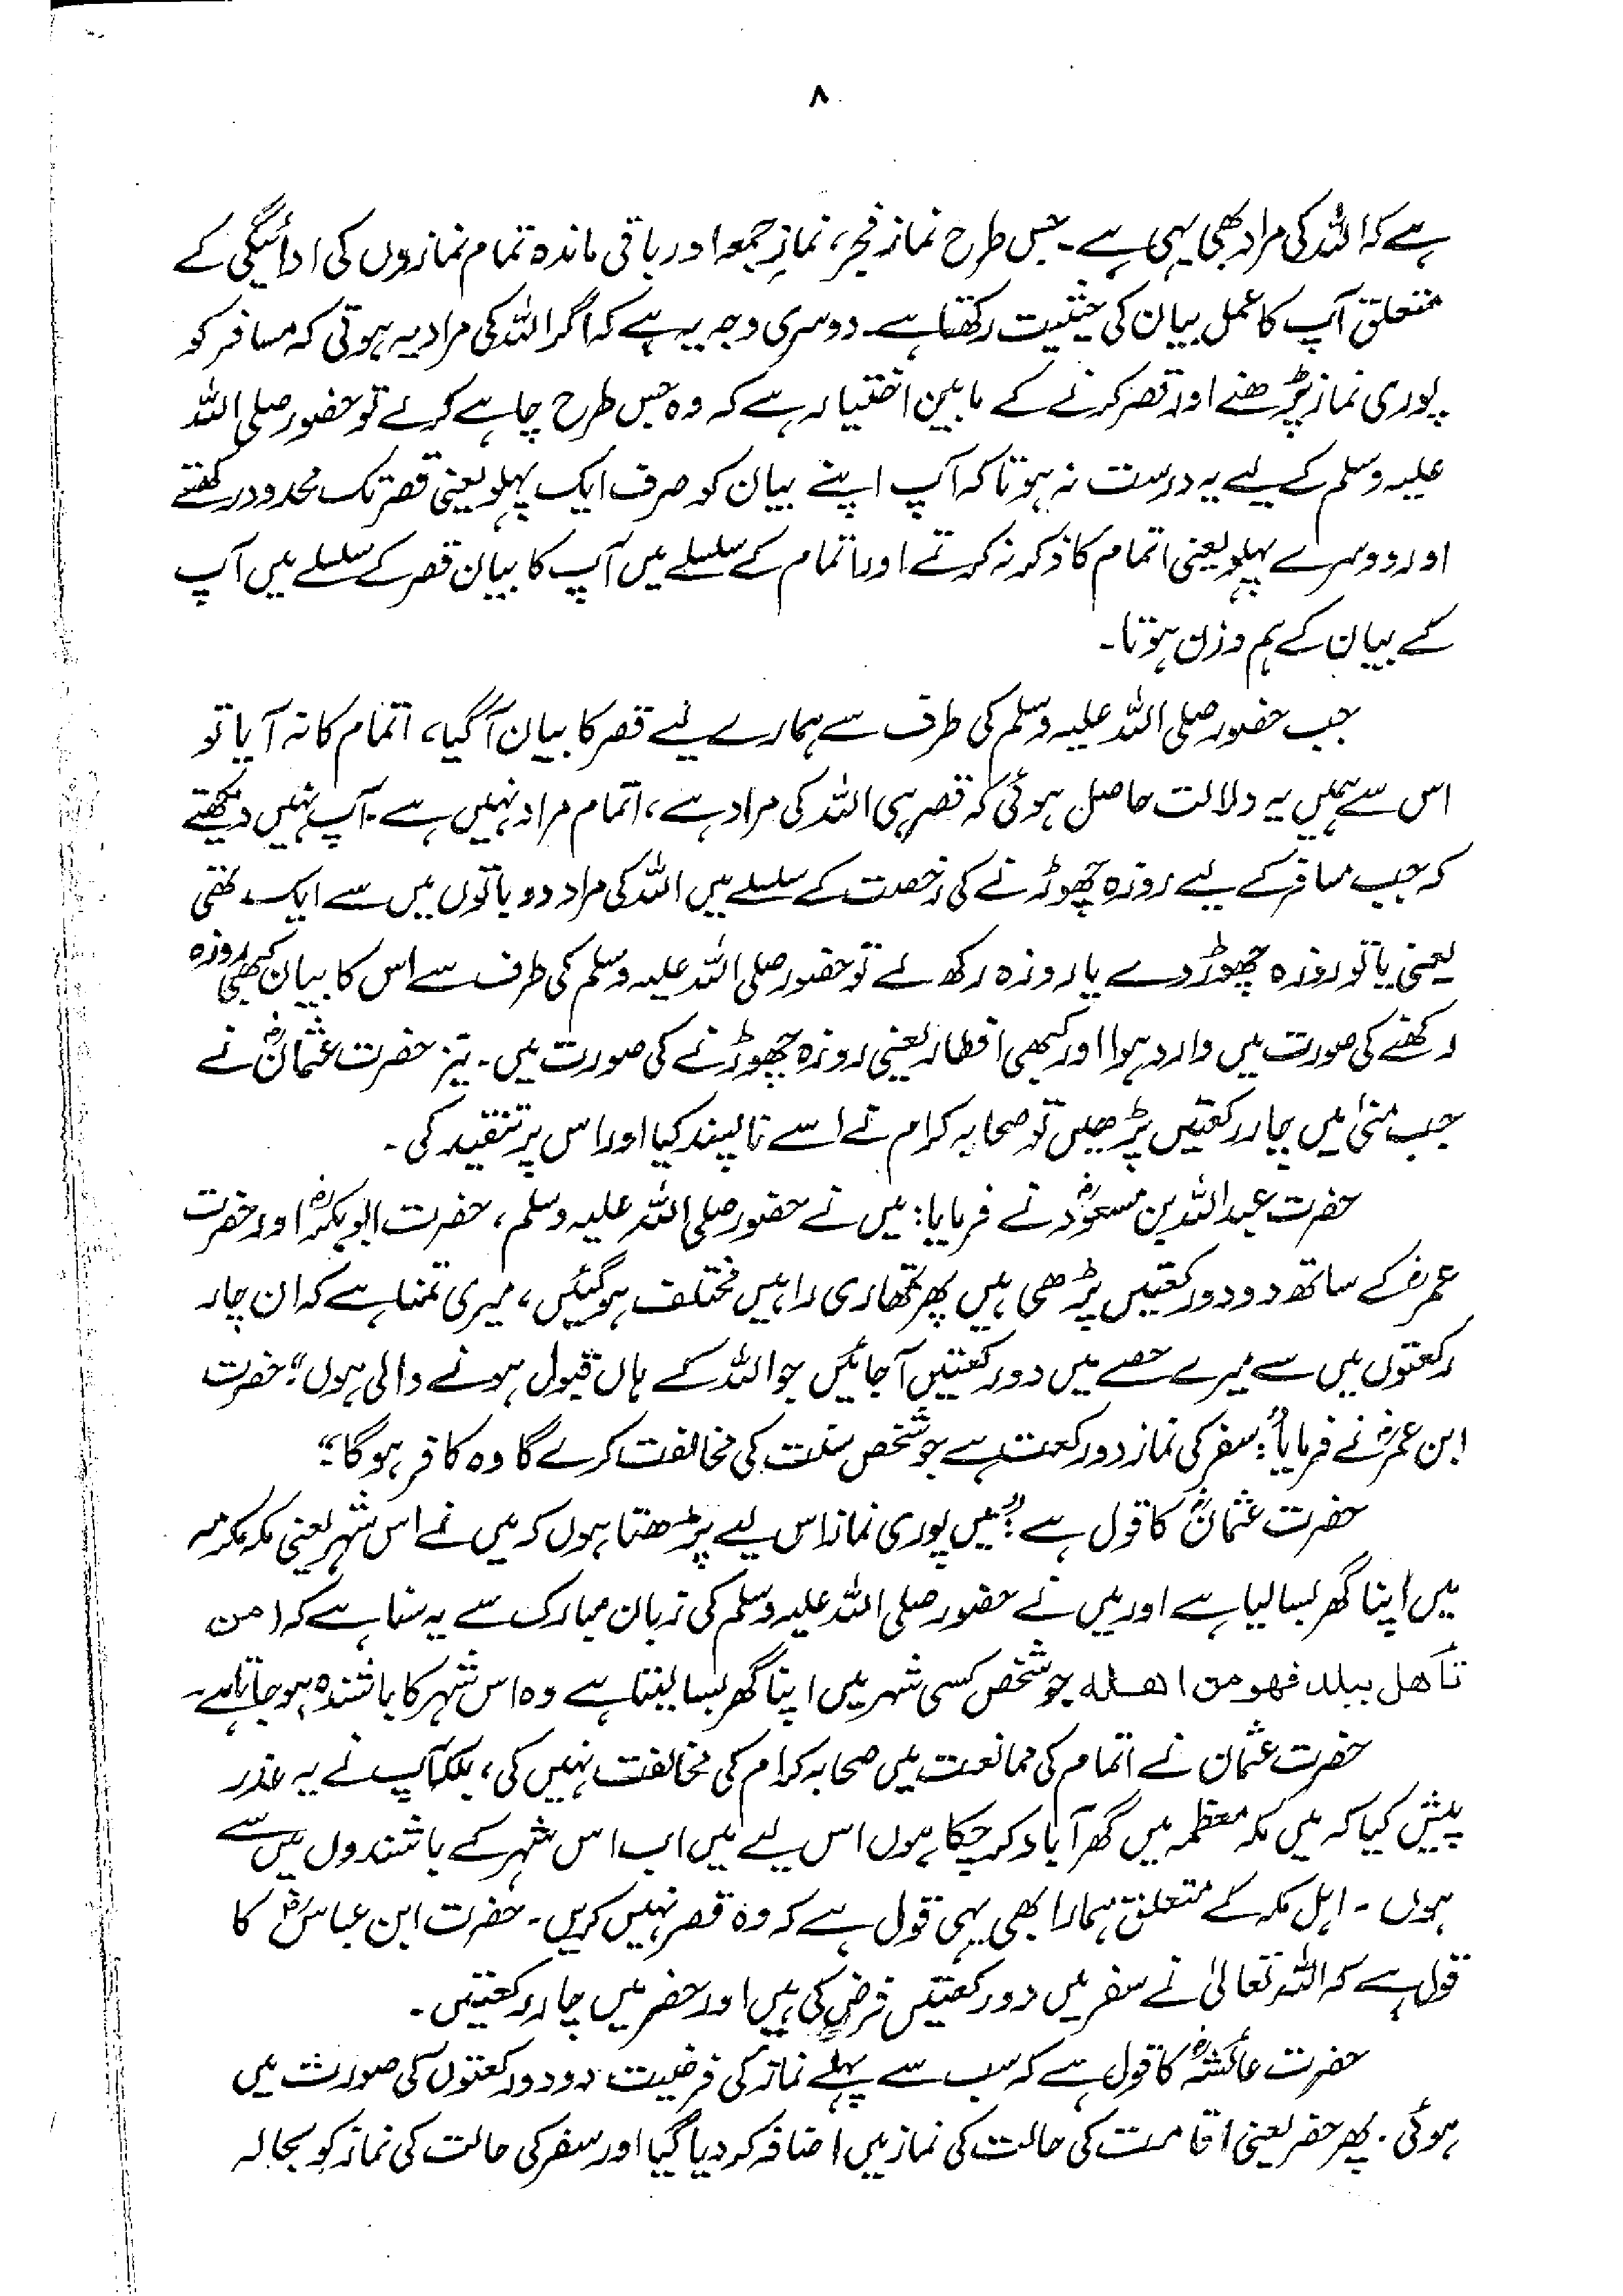 ۸
ہے کہ اللہ کی مراد بھی یہی ہے۔ جس طرح نماز فجر، نماز جمعہ اور باقی ماندہ تمام نمازوں کی ادائیگی کے
متعلق آپ کا عمل بیان کی حیثیت رکھتا ہے۔ دوسری وجہ یہ ہے کہ اگر اللہ کی مراد یہ ہوتی کہ مسافر کو
پوری نماز پڑھنے اور قصر کرنے کے مابین اختیار ہے کہ وہ جس طرح چاہے کرلے تو حضور صلی اللہ
علیہ وسلم کے لیے یہ درست نہ ہوتا کہ آپ اپنے بیان کو صرف ایک پہلو یعنی قصر تک محدود رکھتے
اور دوسرے پہلو یعنی اتمام کا ذکر نہ کرتے اور اتمام کے سلسلے میں آپ کا بیان قصر کے سلسلے میں آپ
کے بیان کے ہم وزن ہوتا۔
جب حضور صلی اللہ علیہ وسلم کی طرف سے ہمارے لیے قصر کا بیان آگیا، اتمام کا نہ آیا تو
اس سے ہمیں یہ دلالت حاصل ہوئی کہ قصر ہی اللہ کی مراد ہے، اتمام مراد نہیں ہے۔ آپ نہیں دیکھتے
کہ جب مسافر کے لیے روزہ چھوڑنے کی رخصت کے سلسلے میں اللہ کی مراد دو باتوں میں سے ایک تھی
یعنی یا تو روزہ چھوڑ دے یا روزہ رکھ لے تو حضور صلی اللہ علیہ وسلم کی طرف سے اس کا بیان کبھی روزہ
رکھنے کی صورت میں وارد ہوا اور کبھی افطار یعنی روزہ چھوڑنے کی صورت میں۔ نیز حضرت عثمانؓ نے
جب منیٰ میں چار رکعتیں پڑھیں تو صحابہ کرام نے اسے ناپسند کیا اور اس پر تنقید کی۔
حضرت عبداللہ بن مسعودؓ نے فرمایا: میں نے حضور صلی اللہ علیہ وسلم، حضرت ابوبکرؓ اور حضرت
عمرؓ کے ساتھ دو دو رکعتیں پڑھی ہیں پھر تمھاری راہیں مختلف ہوگئیں، میری تمنا ہے کہ ان چار
رکعتوں میں سے میرے حصے میں دو رکعتیں آجائیں جو اللہ کے ہاں قبول ہونے والی ہوں"۔ حضرت
ابن عمرؓ نے فرمایا: "سفر کی نماز دو رکعت ہے جو شخص سنت کی مخالفت کرے گا وہ کافر ہوگا"۔
حضرت عثمانؓ کا قول ہے: "میں پوری نماز اس لیے پڑھتا ہوں کہ میں نے اس شہر یعنی مکہ مکرمہ
میں اپنا گھر بسا لیا ہے اور میں نے حضور صلی اللہ علیہ وسلم کی زبان مبارک سے یہ سنا ہے کہ (من
تأھل ببلد فھو من اھلہ جو شخص کسی شہر میں اپنا گھر بسا لیتا ہے وہ اس شہر کا باشندہ ہو جاتا ہے۔
حضرت عثمان نے اتمام کی ممانعت میں صحابہ کرام کی مخالفت نہیں کی، بلکہ آپ نے یہ عذر
پیش کیا کہ میں مکہ معظمہ میں گھر آباد کر چکا ہوں اس لیے میں اب اس شہر کے باشندوں میں سے
ہوں۔ اہل مکہ کے متعلق ہمارا بھی یہی قول ہے کہ وہ قصر نہیں کریں۔ حضرت ابن عباسؓ کا
قول ہے کہ اللہ تعالیٰ نے سفر میں دو رکعتیں فرض کی ہیں اور حضر میں چار رکعتیں۔
حضرت عائشہؓ کا قول ہے کہ سب سے پہلے نماز کی فرضیت دو دو رکعتوں کی صورت میں
ہوئی۔ پھر حضر یعنی اقامت کی حالت کی نماز میں اضافہ کر دیا گیا اور سفر کی حالت کی نماز کو بحالہ